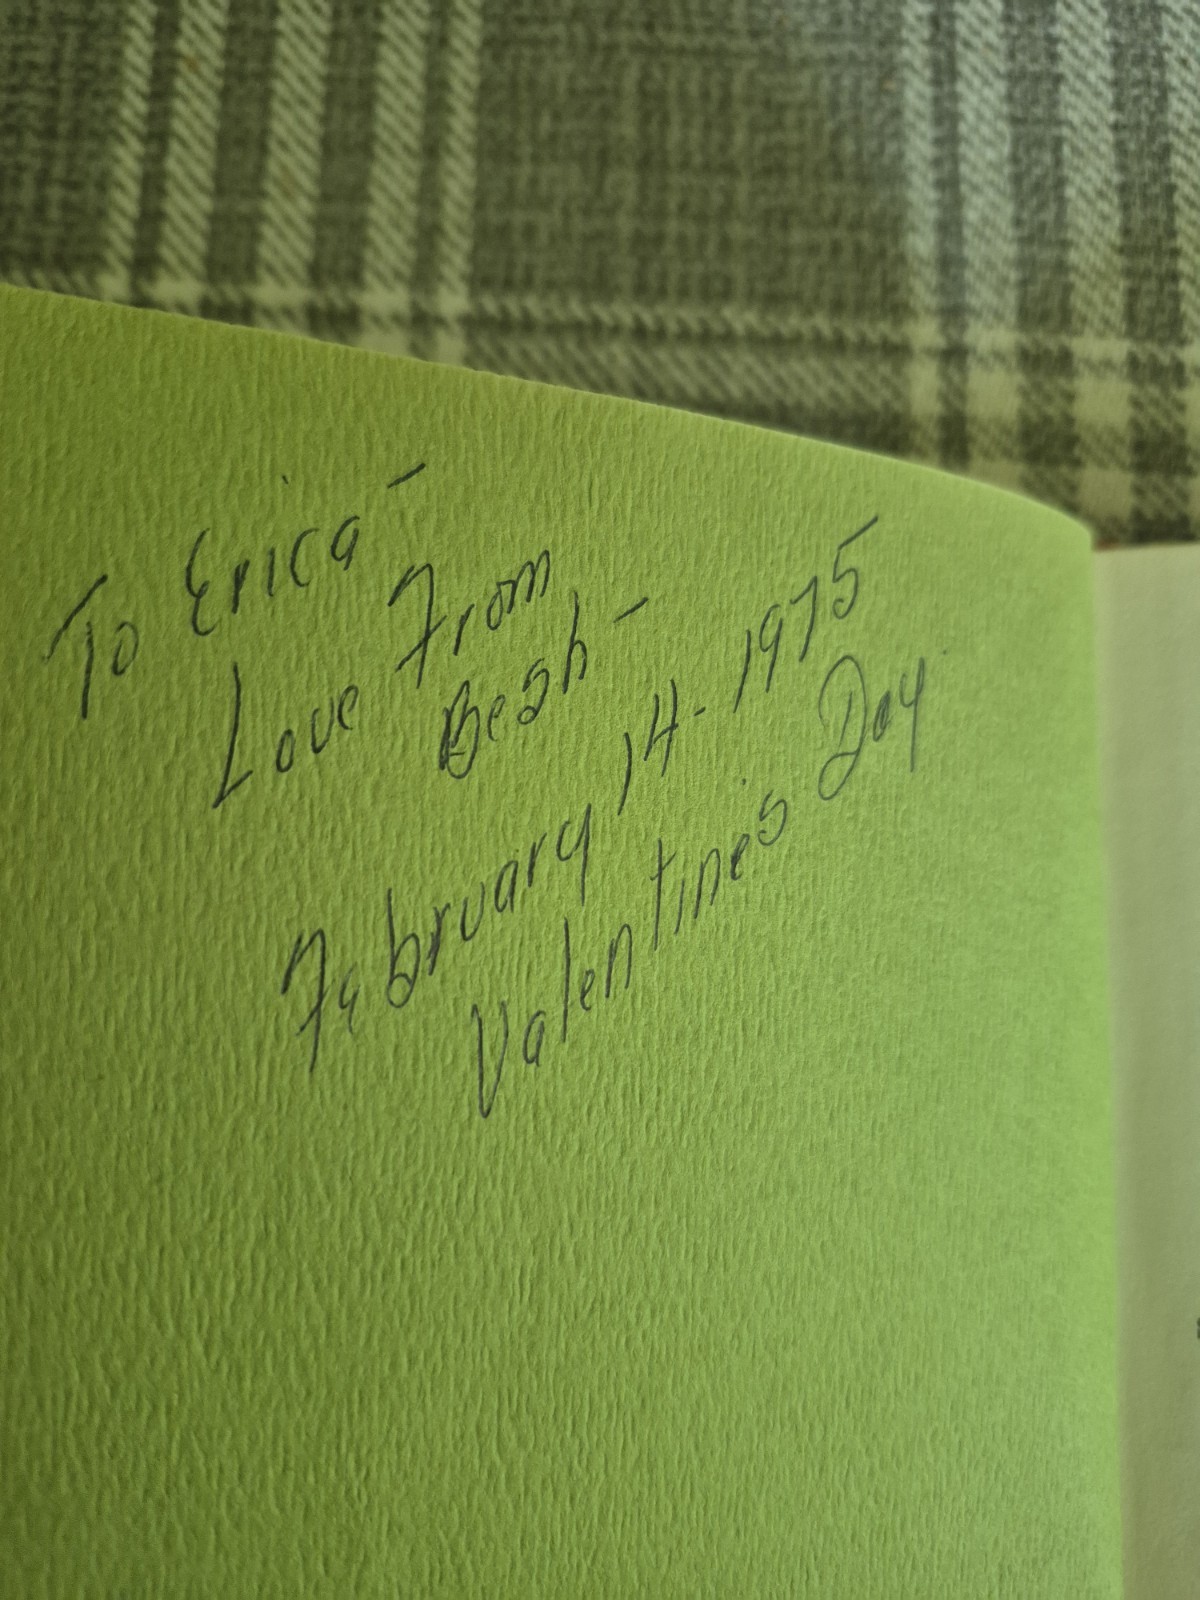 To Erica -
Love From
Besh -
February 14 - 1975
Valentine's Day